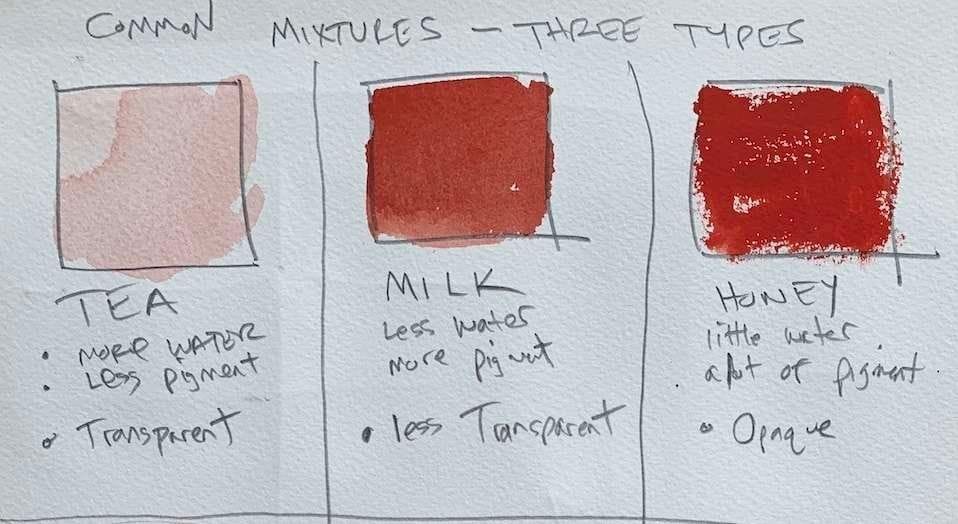 COMMON MIXTURES - THREE TYPES
TEA
• MORE WATER
• Less pigment
• Transparent
MILK
Less water
more pigmnt
• less Transparent
HONEY
little water
. a lot of pigment.
• Opaque